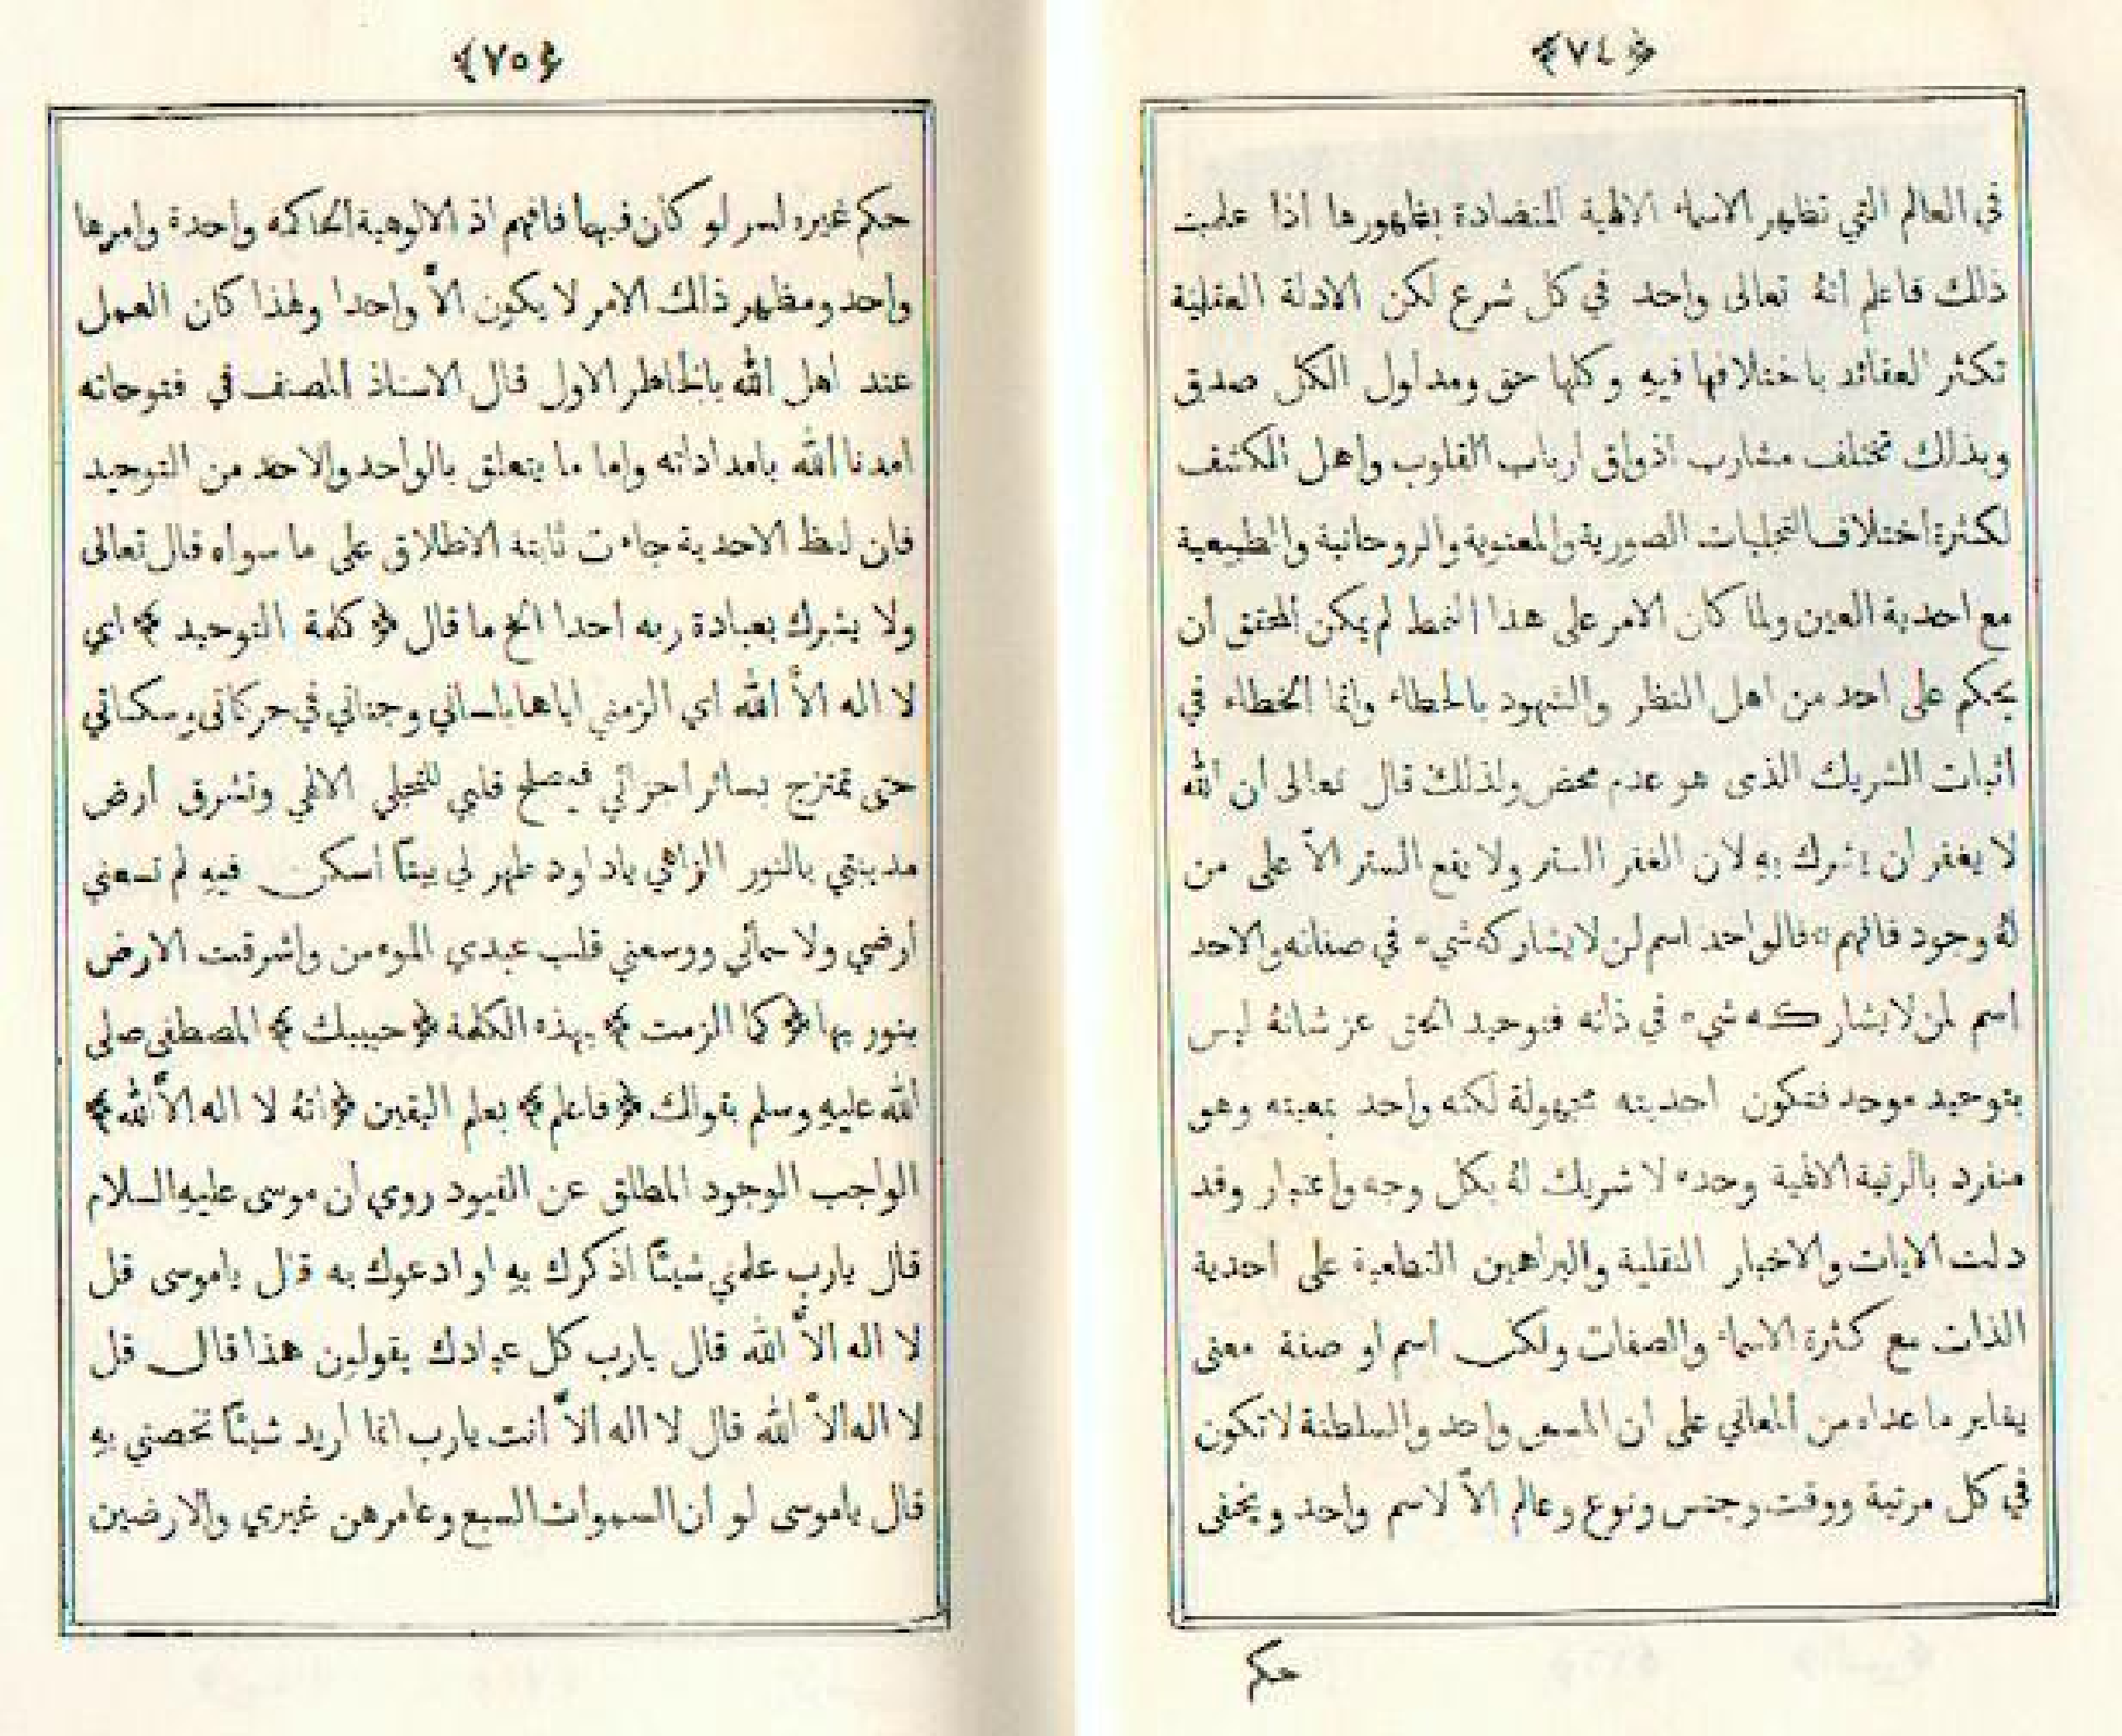 ﴿٧٤﴾
في العالم التي تظهر الاسماء الالهية المتضادة بظهورها اذا علمت
ذلك فاعلم انهُ تعالى واحد في كل شرع لكن الادلة العقلية
تكثر العقائد باختلافها فيه وكلها حق ومدلول الكل صدق
وبذلك تختلف مشارب اذواق ارباب القلوب واهل الكشف
لكثرة اختلاف التجليات الصورية والمعنوية والروحانية والطبيعية
مع احدية العين ولما كان الامر على هذا النمط لم يمكن المحقق ان
يحكم على احد من اهل النظر والشهود بالخطاء وانما الخطاء في
اثبات الشريك الذى هو عدم محض ولذلك قال تعالى ان الله
لا يغفر ان يشرك به لان الغفر الستر ولا يقع الستر الاّ على من
لهُ وجود فافهم فالواحد اسم لمن لا يشاركه شيء في صفاته والاحد
اسم لمن لا يشاركه شيء في ذاته فتوحيد الحق عز شانهُ ليس
بتوحيد موحد فتكون احديته مجهولة لكنه واحد بعينه وهو
منفرد بالرتبة الالهية وحده لا شريك لهُ بكل وجه واعتبار وقد
دلت الايات والاخبار النقلية والبراهين القطعية على احدية
الذات مع كثرة الاسماء والصفات ولكل اسم او صفة معنى
يغاير ما عداه من المعاني على ان المسمى واحد والسلطنة لا تكون
في كل مرتبة ووقت وجنس ونوع وعالم الاّ لاسم واحد ويخفى
حكم
﴿٧٥﴾
حكم غيره لسر لو كان فيها فافهم اذ الالوهية الحاكمة واحدة وامرها
واحد ومظهر ذلك الامر لا يكون الاّ واحدا ولهذا كان العمل
عند اهل الله بالخاطر الاول قال الاستاذ المصنف في فتوحاته
امدنا الله بامداداته واما ما يتعلق بالواحد والاحد من التوحيد
فان لفظ الاحدية جاءت ثابته الاطلاق على ما سواه قال تعالى
ولا يشرك بعبادة ربه احدا الخ ما قال ﴿ كلمة التوحيد ﴾ اي
لا اله الاّ الله اي الزمني اياها بلساني وجناني في حركاتي وسكناتي
حتى تمتزج بسائر اجزائي فيصلح قلبي للتجلي الالهي وتشرق ارض
مدينتي بالنور الزاهي ياداود طهر لي بيتًا أسكن فيهِ لم تسعني
أرضي ولا سمائي ووسعني قلب عبدي الموءمن واشرقت الارض
بنور ربها ﴿ كما الزمت ﴾ بهذه الكلمة ﴿ حبيبك ﴾ المصطفى صلى
الله عليهِ وسلم بقولك ﴿ فاعلم ﴾ بعلم اليقين ﴿ انهُ لا اله الاّ الله ﴾
الواجب الوجود المطلق عن القيود روي ان موسى عليهِ السلام
قال يارب علمني شيئًا اذكرك بهِ او ادعوك به قال ياموسى قل
لا اله الاّ الله قال يارب كل عبادك يقولون هذا قال قل
لا اله الاّ الله قال لا اله الاّ انت يارب انما أريد شيئًا تخصني بهِ
قال ياموسى لو ان السموات السبع وعامرهن غيري والارضين